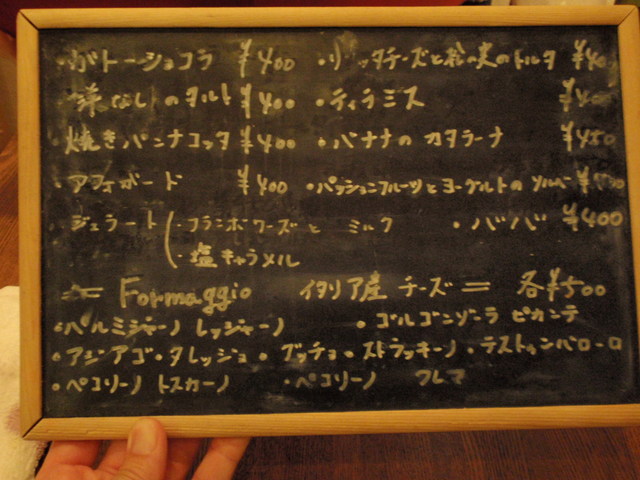 ・ガトーショコラ ¥400 ・リコッタチーズと松の実のトルタ ¥40
洋なしのタルト ¥400 ・ティラミス ¥400
・焼きパンナコッタ ¥400 ・バナナのカタラーナ ¥450
・アフォガード ¥400 ・パッションフルーツとヨーグルトのソルベ
ジェラート(・フランボワーズとミルク ・ババ ¥400
・塩キャラメル
= Formaggio イタリア産 チーズ = 各¥500
・パルミジャーノ レッジャーノ ・ゴルゴンゾーラ ピカンテ
・アジアゴ・タレッジョ・ブッチョ・ストラッキーノ・テストゥンバローロ
・ペコリーノ トスカーノ ・ペコリーノ クレマ